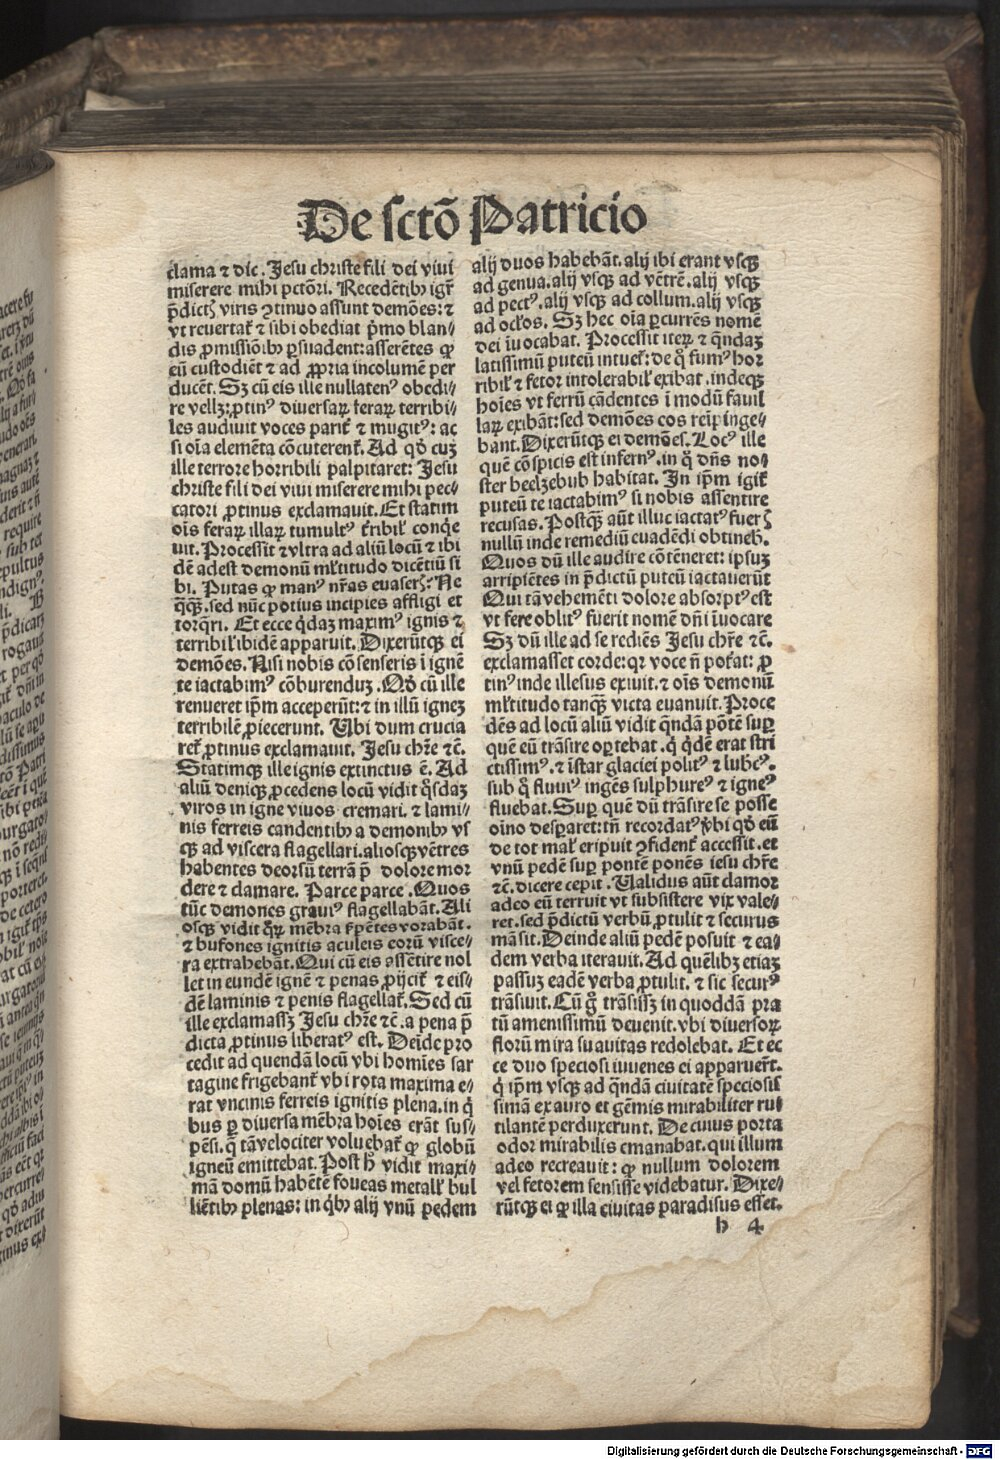 De sctō Patricio
clama ⁊ dic. Jesu christe fili dei viui
miserere mihi pctōri. Recedētibꝫ igr̄
p̄dictꝭ viris ꝯtinuo assunt demōes: ⁊
vt reuertat̄ ⁊ sibi obediat pͥmo blan⸗
dis ꝓmissiōibꝫ ꝑsuadent: asserētes ꝙ
eū custodiēt ⁊ ad ꝓpria incolumē per
ducēt. Sꝫ cū eis ille nullatenꝰ obedi⸗
re vellꝫ: ꝓtinꝰ diuersaꝝ feraꝝ terribi⸗
les audiuit voces parit̄ ⁊ mugitꝰ: ac
si oīa elemēta cōcuterent̄. Ad qd̓ cuꝫ
ille terrore horribili palpitaret: Jesu
christe fili dei viui miserere mihi pec⸗
catori ꝓtinus exclamauit. Et statim
oīs feraꝝ illaꝝ tumultꝰ t̄ribil̓ conq̄e
uit. Processit ⁊ vltra ad aliū locū ⁊ ibi
dē adest demonū ml̓titudo dicētiū si
bi. Putas ꝙ manꝰ nr̄as euaserꝭ: Ne
q̄ꝙ. sed nūc potius incipies affligi et
torq̄ri. Et ecce q̓daꝫ maximꝰ ignis ⁊
terribil̓ ibidē apparuit. Dixerūtqꝫ ei
demōes. Nisi nobis cōsenseris ī ignē
te iactabimꝰ cōburenduꝫ. Qd̓ cū ille
renueret ip̄m acceperūt: ⁊ in illū igneꝫ
terribilē ꝓiecerunt. Vbi dum crucia
ret̄ ꝓtinus exclamauit. Jesu chr̄e ⁊c̄.
Statimqꝫ ille ignis extinctus ē. Ad
aliū deniqꝫ ꝓcedens locū vidit q̓sdaꝫ
viros in igne viuos cremari. ⁊ lami⸗
nis ferreis candentibꝫ a demonibꝫ vs
qꝫ ad viscera flagellari. aliosqꝫ vētres
habentes deorsū terrā p̄ dolore mor
dere ⁊ clamare. Parce parce. Quos
tūc demones grauiꝰ flagellabāt. Ali
osqꝫ vidit qͦꝝ mēbra ẜpētes vorabāt.
⁊ bufones ignitis aculeis eorū visce⸗
ra extrahebāt. Qui cū eis assētire nol
let in eundē ignē ⁊ penas ꝓijcit̄ ⁊ eis⸗
dē laminis ⁊ penis flagellat̄. Sed cū
ille exclamassꝫ Jesu chr̄e ⁊c̄. a pena p̄
dicta ꝓtinus liberatꝰ est. Deīde pro
cedit ad quendā locū vbi homīes sar
tagine frigebant̄ vbi rota maxima e⸗
rat vncinis ferreis ignitis plena. in q̓
bus ꝑ diuersa mēbra hoīes erāt sus⸗
pēsi. q̄ tā velociter voluebat̄ ꝙ globū
igneū emittebat. Post h̄ vidit maxi⸗
mā domū habētē foueas metall̓ bul
liētibꝫ plenas: in q̓bꝫ alij vnū pedem
alij duos habebāt. alij ibi erant vsqꝫ
ad genua. alij vsqꝫ ad vētrē. alij vsqꝫ
ad pectꝰ. alij vsqꝫ ad collum. alij vsqꝫ
ad ocl̓os. Sꝫ hec oīa ꝑcurrēs nomē
dei īuocabat. Processit iteꝝ ⁊ quendaꝫ
latissimū puteū intuet̄: de q̓ fumꝰ hor
ribil̓ ⁊ fetor intolerabil̓ exibat. indeqꝫ
hoīes vt ferrū cādentes ī modū fauil
laꝝ exibāt: sed demōes eos reiꝑ inge⸗
bant. Dixerūtqꝫ ei demōes. Locꝰ ille
quē cōspicis est infernꝰ. in q̓ dn̄s no⸗
ster beelzebub habitat. In ip̄m igit̄
puteū te iactabimꝰ si nobis assentire
recusas. Postqꝫ aūt illuc iactatꝰ fuerꝭ
nullū inde remediū euadēdi obtineb̓.
Quos dū ille audire cōtēneret: ipsuꝫ
arripiētes in p̄dictū puteū iactauerūt
Qui tā vehemēti dolore absorptꝰ est
vt fere oblitꝰ fuerit nomē dn̄i īuocare
Sꝫ dū ille ad se rediēs Jesu chr̄e ⁊c̄.
exclamasset corde: qꝛ voce n̄ pot̄at: ꝓ
tinꝰ inde illesus exiuit. ⁊ oīs demonū
ml̓titudo tanqꝫ victa euanuit. Proce
dēs ad locū aliū vidit quendā pōtē suꝑ
quē eū trāsire oꝑtebat. q̓ q̓dē erat stri
ctissimꝰ. ⁊ īstar glaciei politꝰ ⁊ lubcꝰ.
sub q̓ fluuiꝰ ingēs sulphureꝰ ⁊ igneꝰ
fluebat. Suꝑ quē dū trāsire se posse
oīno desꝑaret: tn̄ recordatꝰ v̓bi qd̓ eū
de tot mal̓ eripuit ꝯfident̓ accessit. et
vnū pedē suꝑ pontē ponēs iesu chr̄e
⁊c̄. dicere cepit. Validus aūt clamor
adeo eū terruit vt subsistere vix vale⸗
ret. sed p̄dictū verbū ꝓtulit ⁊ securus
māsit. Deinde aliū pedē posuit ⁊ ea⸗
dem verba iterauit. Ad quēlibꝫ etiaꝫ
passuꝫ eadē verba ꝓtulit. ⁊ sic securꝰ
trāsiuit. Cū gͦ trāsissꝫ in quoddā pra
tū amenissimū deuenit. vbi diuersoꝝ
florū mira suauitas redolebat. Et ec
ce duo speciosi iuuenes ei apparuer̄t.
q̓ ip̄m vsqꝫ ad quendā ciuitatē speciosis
simā ex auro et gēmis mirabiliter ru⸗
tilantē perduxerunt. De cuius porta
odor mirabilis emanabat. qui illum
adeo recreauit: ꝙ nullum dolorem
vel fetorem sensisse videbatur. Dixe⸗
rūtqꝫ ei ꝙ illa ciuitas paradisus esset.
h 4
Digitalisierung gefördert durch die Deutsche Forschungsgemeinschaft - DFG